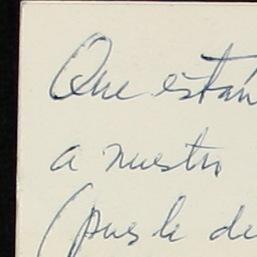 Que están
a nuestro
(pues le de